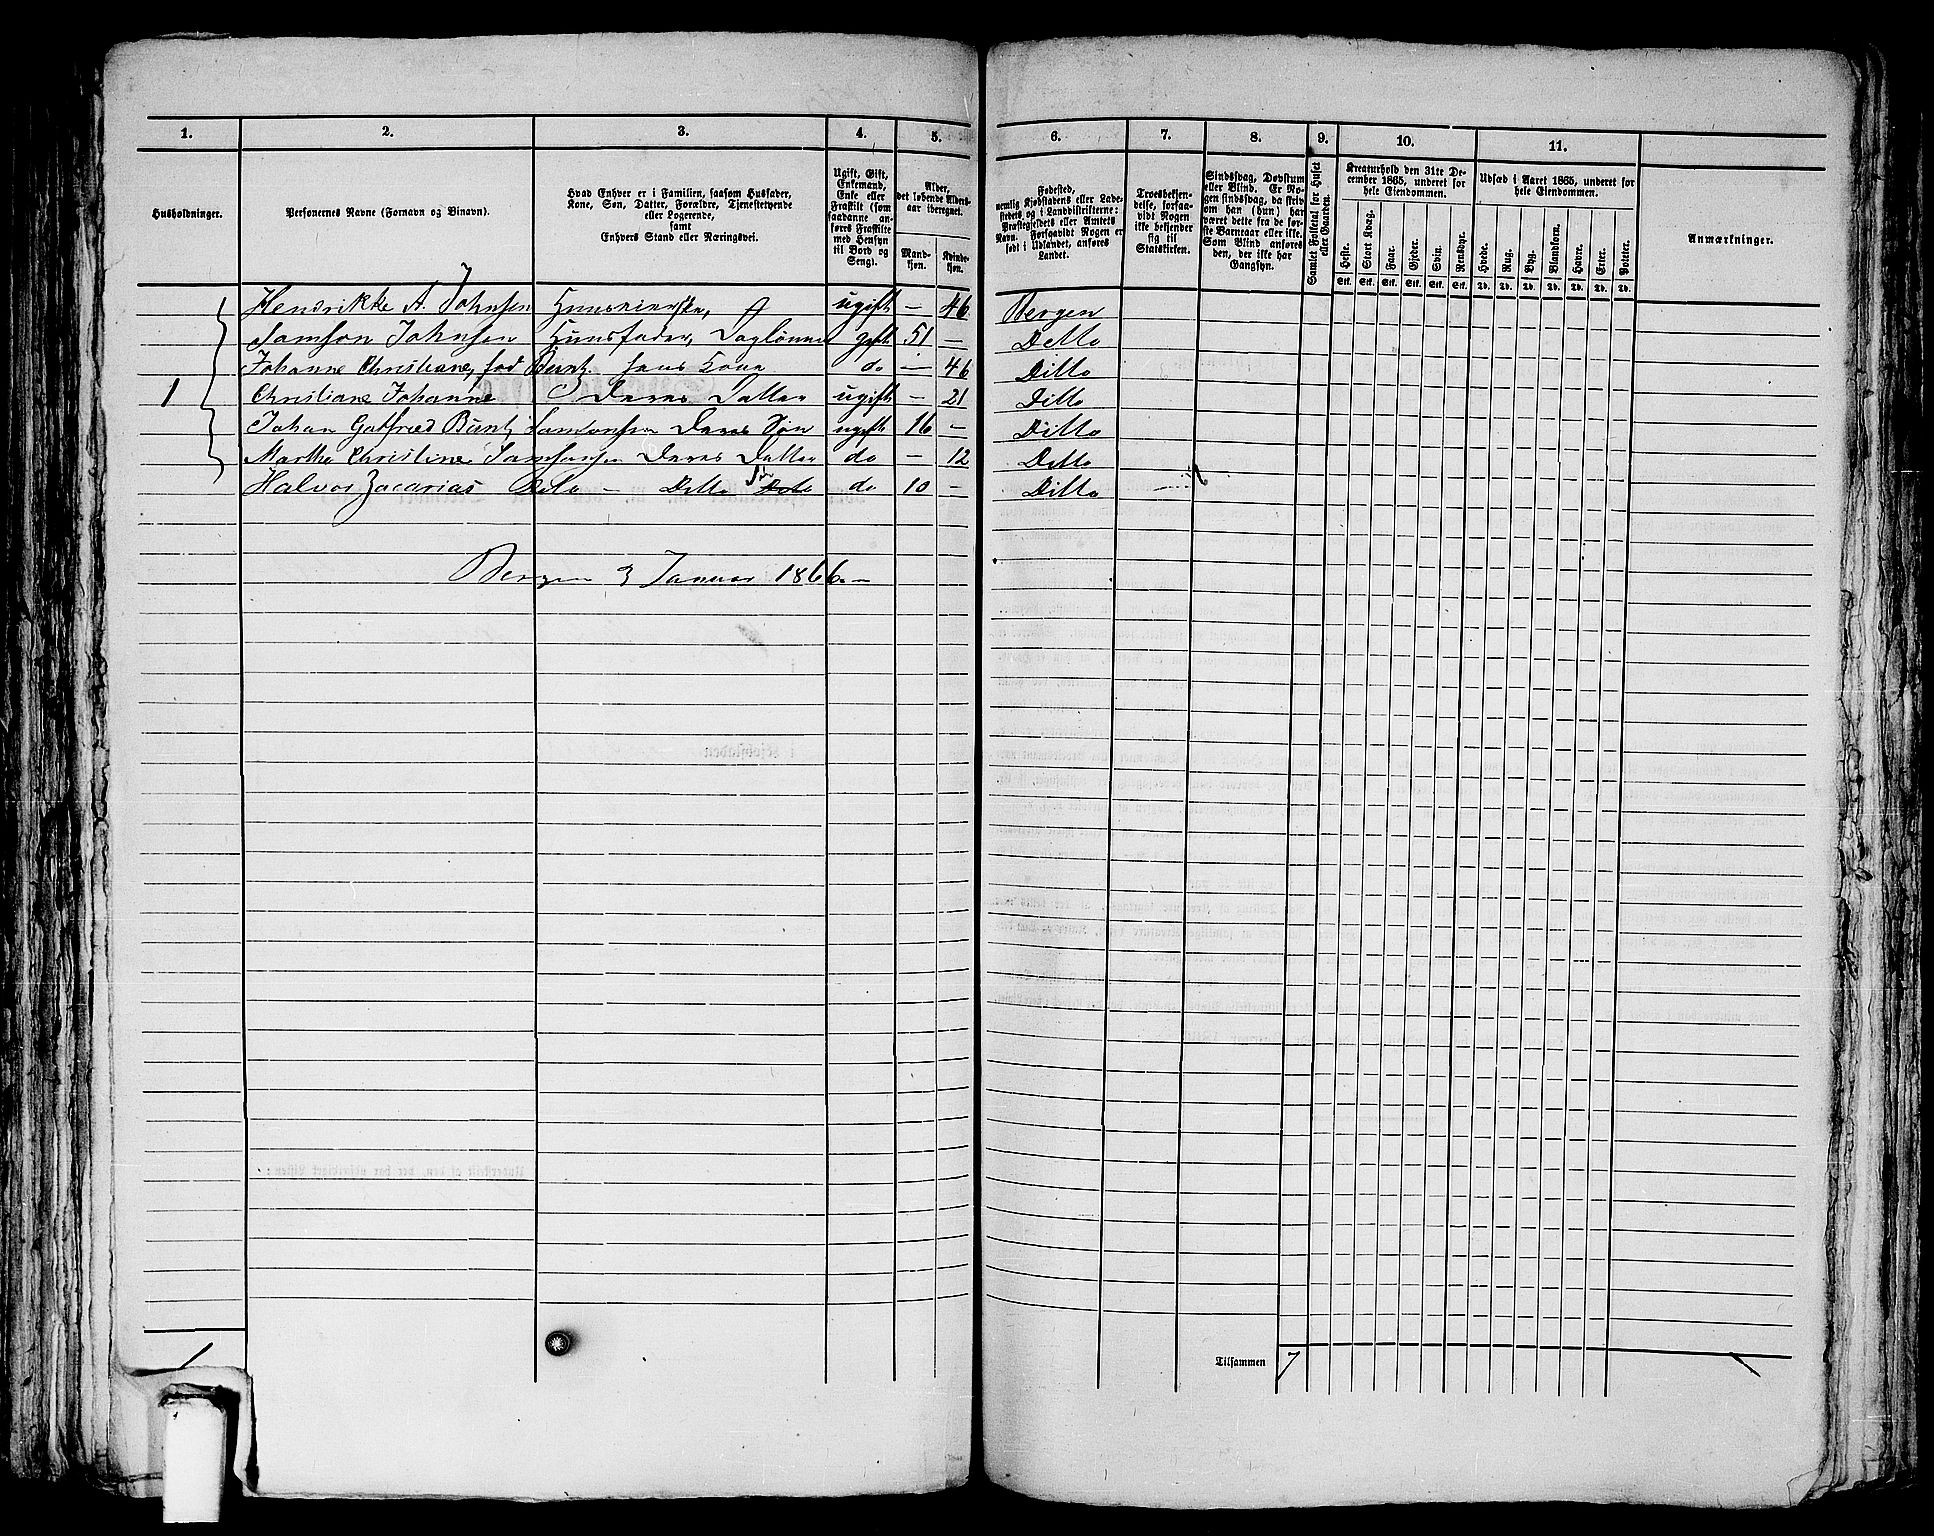 1. 2. 3. 4. 5. 6. 7. 8. 9. 10. 11.
Husholdninger.
Personernes Navne (Fornavn og Binavn).
Hvad Enhver er i Familien, saasom Husfader,
Kone, Søn, Datter, Forældre, Tjenestetyende
eller Logerende,
samt
Enhvers Stand eller Næringsvei.
Ugift, Gift,
Enkemand,
Enke eller
Fraskilt (som
saadanne an-
føres Fraskilte
med Hensyn
til Bord og
Seng).
Alder,
det løbende Alders-
aar iberegnet.
Mand-
kjøn.
Kvinde-
kjøn.
Fødested,
nemlig Kjøbstadens eller Lade-
stedets og i Landdistrikterne:
Præstegjeldets eller Amtets
Navn. Forsaavidt Nogen er
født i Udlandet, anføres
Landet.
Troesbekjen-
delse, forsaa-
vidt Nogen
ikke bekjender
sig til
Statskirken.
Sindssvag, Døvstum
eller Blind. Er No-
gen sindssvag, da skriv
om han (hun) har
været dette fra de før-
ste Barneaar eller ikke.
Som Blind anføres
den, der ikke har
Gangsyn.
Samlet Folketal for Huset
eller Gaarden.
Kreaturhold den 31te De-
cember 1865, underet for
hele Eiendommen.
Heste. Stort Kvæg. Faar. Gjeder. Svin. Rensdyr.
Stk. Stk. Stk. Stk. Stk. Stk.
Udsæd i Aaret 1865, underet for
hele Eiendommen.
Hvede. Rug. Byg. Blandkorn. Havre. Erter. Poteter.
Td. Td. Td. Td. Td. Td. Td.
Anmærkninger.
Hendrikke A. Johnsen ugift — 46 Bergen
Samson Johnsen Huusfader, Daglønner gift 51 — Ditto
Johanne Christiane, fød Buntz hans Kone do — 46 Ditto
1 Christiane Johanne Deres Datter ugift — 21 Ditto
Johan Gotfried Buntz Samsonsen Deres Søn ugift 16 — Ditto
Marthe Christine Samsonsen Deres Datter do — 12 Ditto
Halvor Zacarias Dito — Ditto Søn do 10 — Ditto
Bergen 3 Januar 1866. —
Tilsammen 7